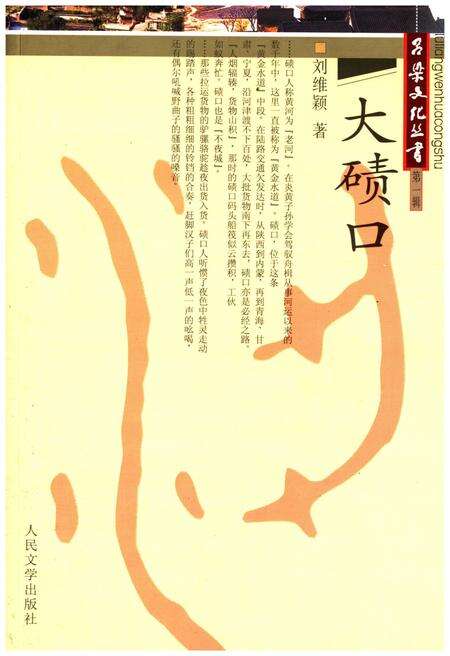 吕梁文化丛书
第一辑
lüliangwenhuacongshu
大碛口
刘维颖 著
……碛口人称黄河为『老河』。在炎黄子孙学会驾驭舟楫从事河运以来的
数千年中，这里一直被称为『黄金水道』。碛口，位于这条
『黄金水道』中段。在陆路交通欠发达时，从陕西到内蒙，再到青海、甘
肃、宁夏，沿河津渡不下百处，大批货物南下再东去，碛口亦是必经之路。
『人烟辐辏，货物山积』，那时的碛口码头船筏似云攒积，工伙
如蚁奔忙。碛口也是『不夜城』。
……那些拉运货物的驴骡骆驼趁夜出货入货。碛口人听惯了夜色中牲灵走动
的踢踏声，各种粗粗细细的铃铛的合奏，赶脚汉子们高一声低一声的吆喝，
还有偶尔吼喊野曲子的骚骚的嗓音。
人民文学出版社